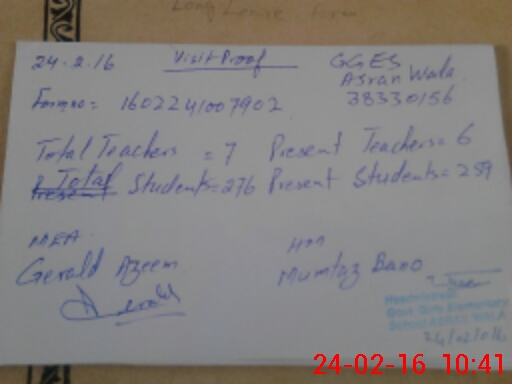 Long Leave Form
24.2.16 Visit Proof GGES
Asran Wala
38330156
Form no = 1602241007902
Total Teachers = 7 Present Teachers = 6
Total
Present Students = 276 Present Students = 259
MEA HM
Gerald Azeem Mumtaz Bano
Gerald
Headmistress
Govt Girls Elementary
School ASRAN WALA
24/02/016
24-02-16 10:41